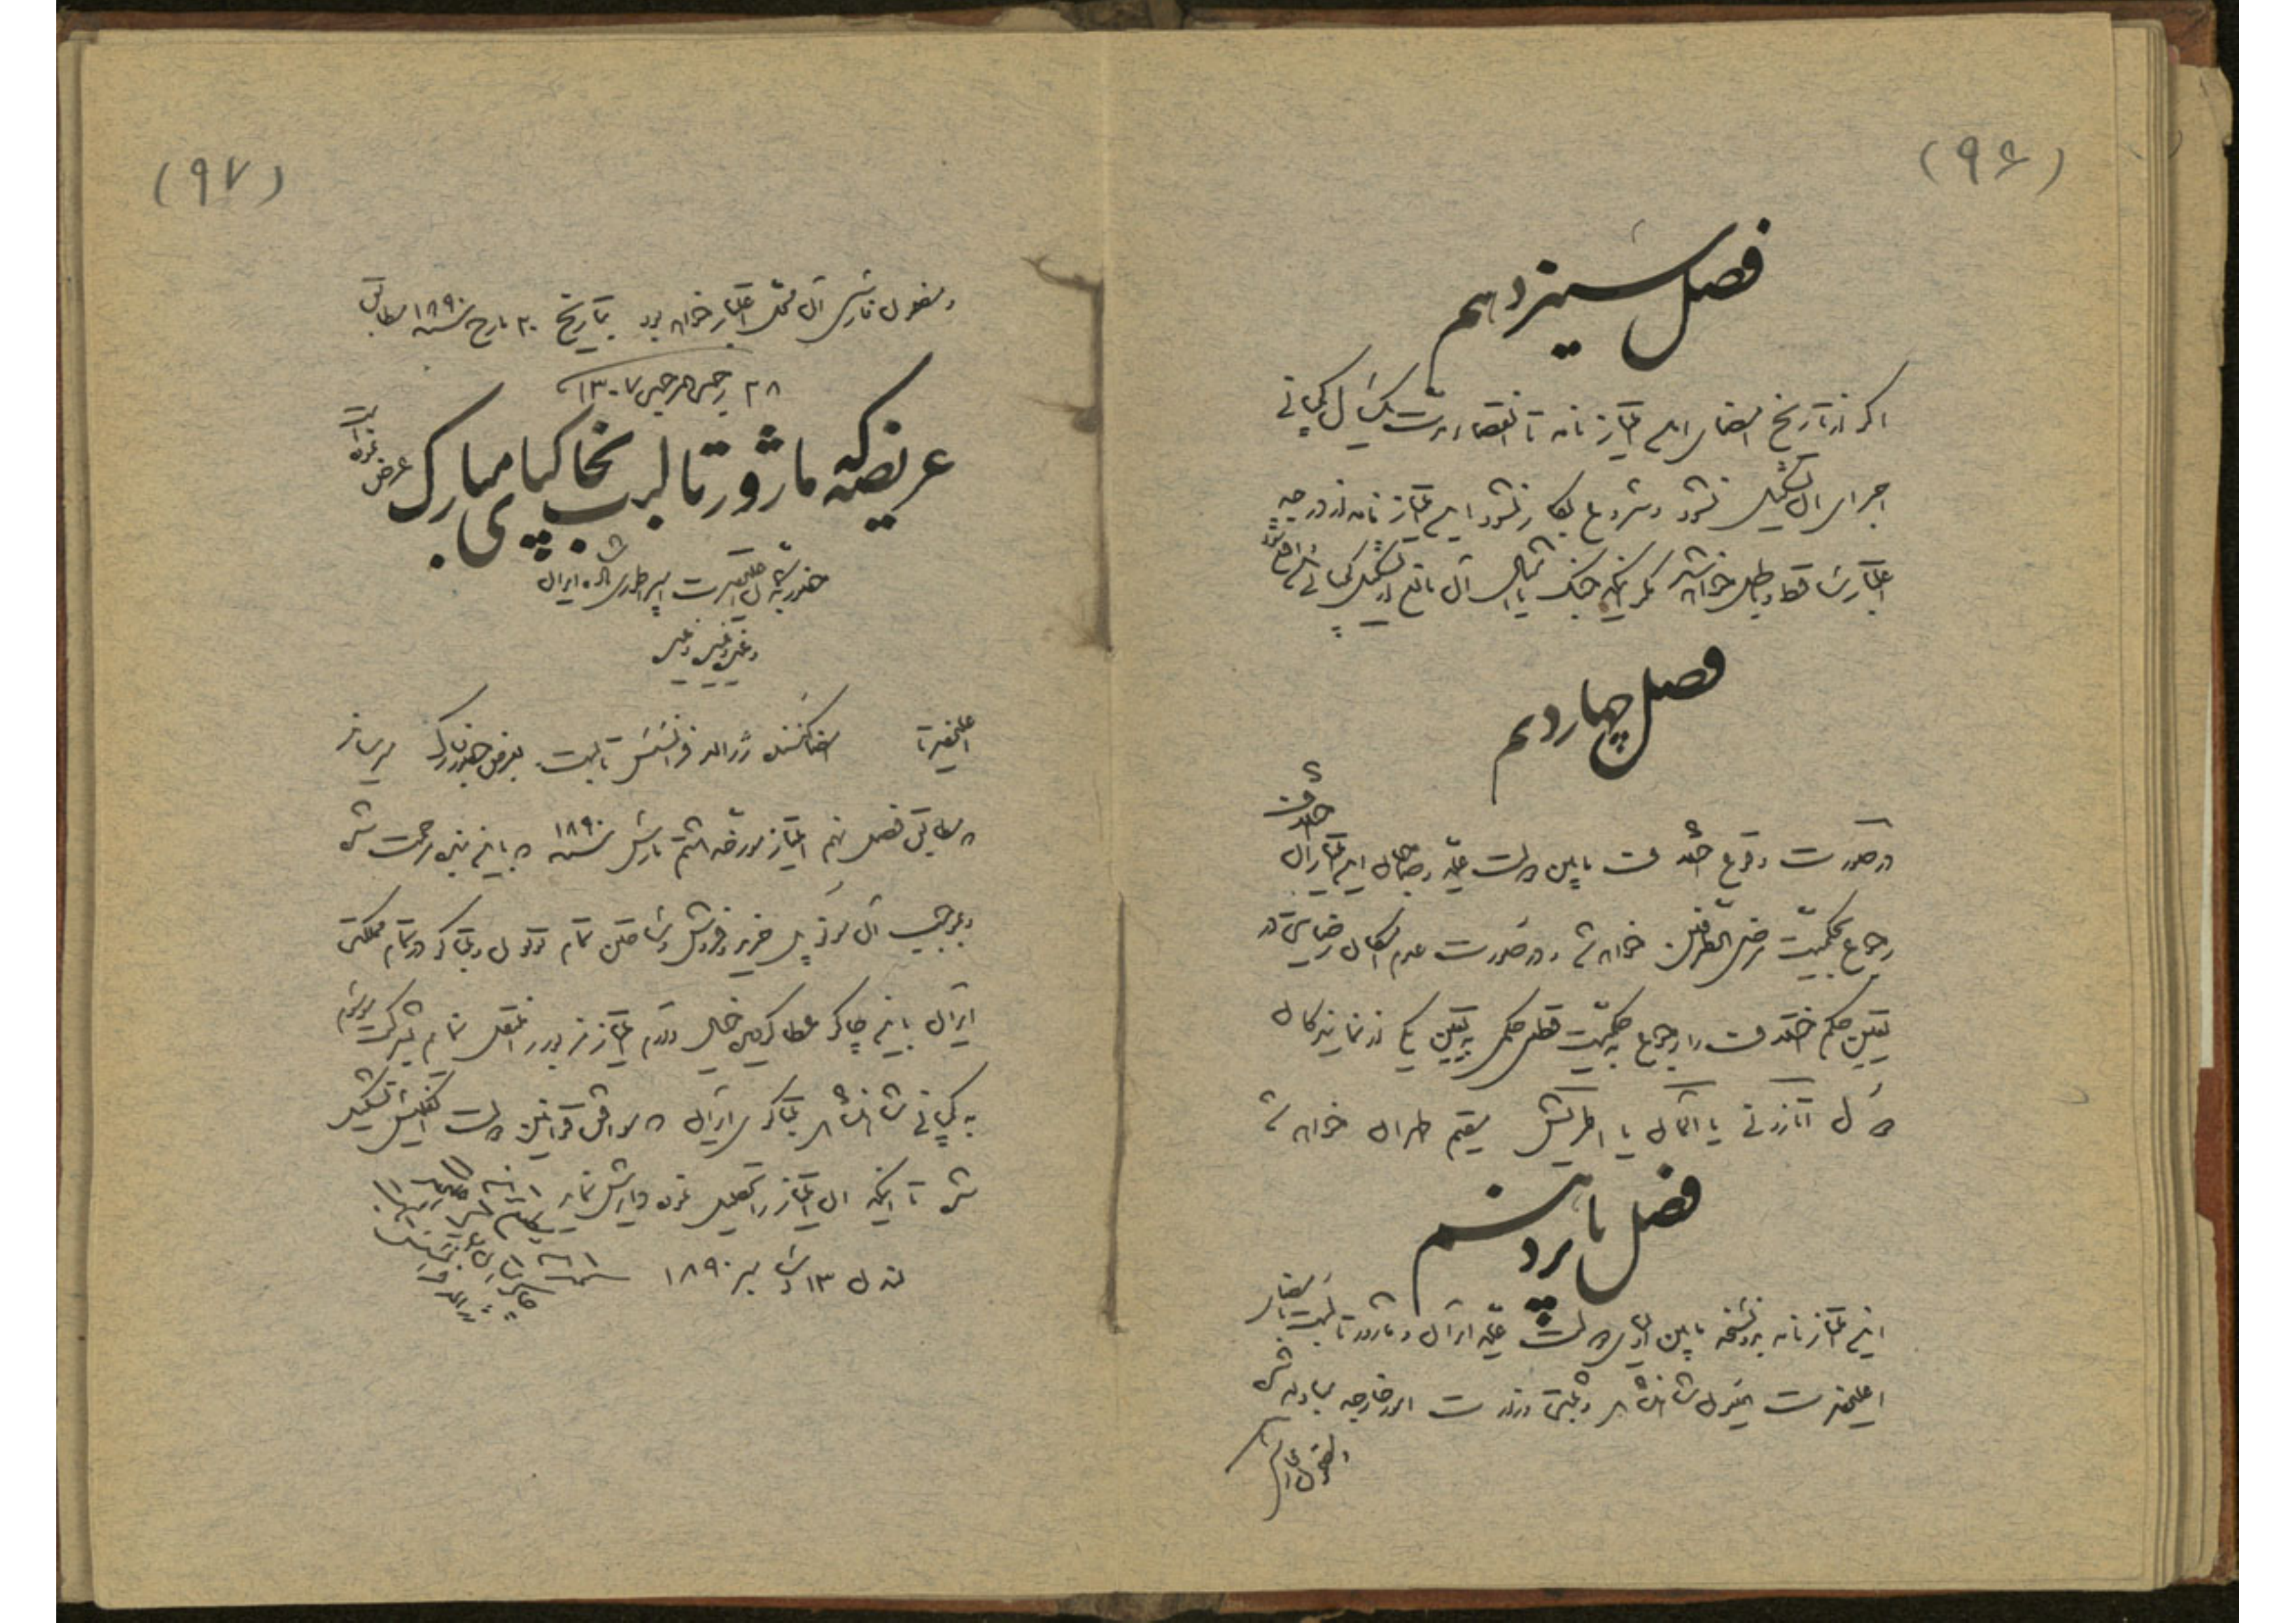 (۹۶)
فصل سیزدهم
اگر از تاریخ امضای این امتیازنامه تا انقضاء مدت یکسال کمپانی
اجرای آن تشکیل نشود و شروع بکار نشود این امتیازنامه از درجه
اعتبار ساقط و باطل خواهد شد مگر اینکه جنگ یا امثال آن مانع از تشکیل کمپانی واقع شود
فصل چهاردهم
در صورت وقوع اختلاف مابین دولت علیه و صاحبان این امتیاز آن اختلاف
رجوع بحکمیت مرضی الطرفین خواهد شد و در صورت عدم امکان رضایت در
تعیین حکم اختلاف را رجوع به حکمیت قطعی حکمی به تعیین یکی از نمایندگان
دول اتازونی یا آلمان یا اطریش مقیم طهران خواهد شد
فصل پانزدهم
این امتیازنامه بدو نسخه مابین اولیای دولت علیه ایران و ماژور تالبت بامضای
اعلیحضرت همایون شاهنشاهی و ثبت وزارت امور خارجه مبادله شد
(۹۷)
و مضمون فارسی آن محل اعتبار خواهد بود بتاریخ ۲۰ مارچ سنه ۱۸۹۰ مطابق
۲۸ رجب المرجب ۱۳۰۷
عریضه که ماژور تالبت بخاکپای مبارک عرض نموده است
حضور اعلیحضرت امپراطوری شاه ایران
و غیره و غیره و غیره
اعلیحضرتا امضا کننده ژرالد فرانسیس تالبت بعرض حضور مبارک میرساند
که مطابق فصل نهم امتیاز مورخه هشتم مارس سنه ۱۸۹۰ که باین بنده مرحمت شده
و بموجب آن مونوپل خرید و فروش و ساختن تمام توتون و تنباکو در تمام مملکت
ایران باین چاکر عطا گردیده خیال دارم امتیاز مزبور را منتقل نمایم بشرکت موسوم
به کمپانی شاهنشاهی تنباکوی ایران که موافق قوانین دولت انگلیس تشکیل
شده تا اینکه این امتیاز را تحصیل نموده دایرش نماید
لندن ۱۳ نوامبر ۱۸۹۰